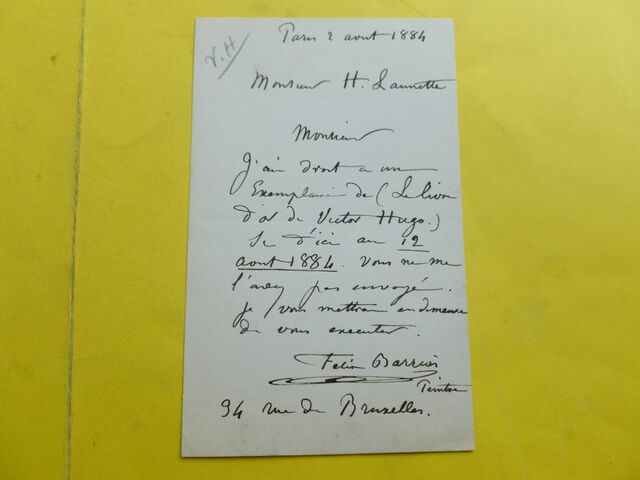 V.H
Paris 2 aout 1884
Monsieur H. Launette
Monsieur
J'ai droit a un
Exemplaire de (Le livre
d'or de Victor Hugo.)
Si d'ici au 12
aout 1884. vous ne me
l'avez pas envoyé.
je vous mettrai en demeure
de vous executer.
Felix Barrias
Peintre
34 rue de Bruxelles.